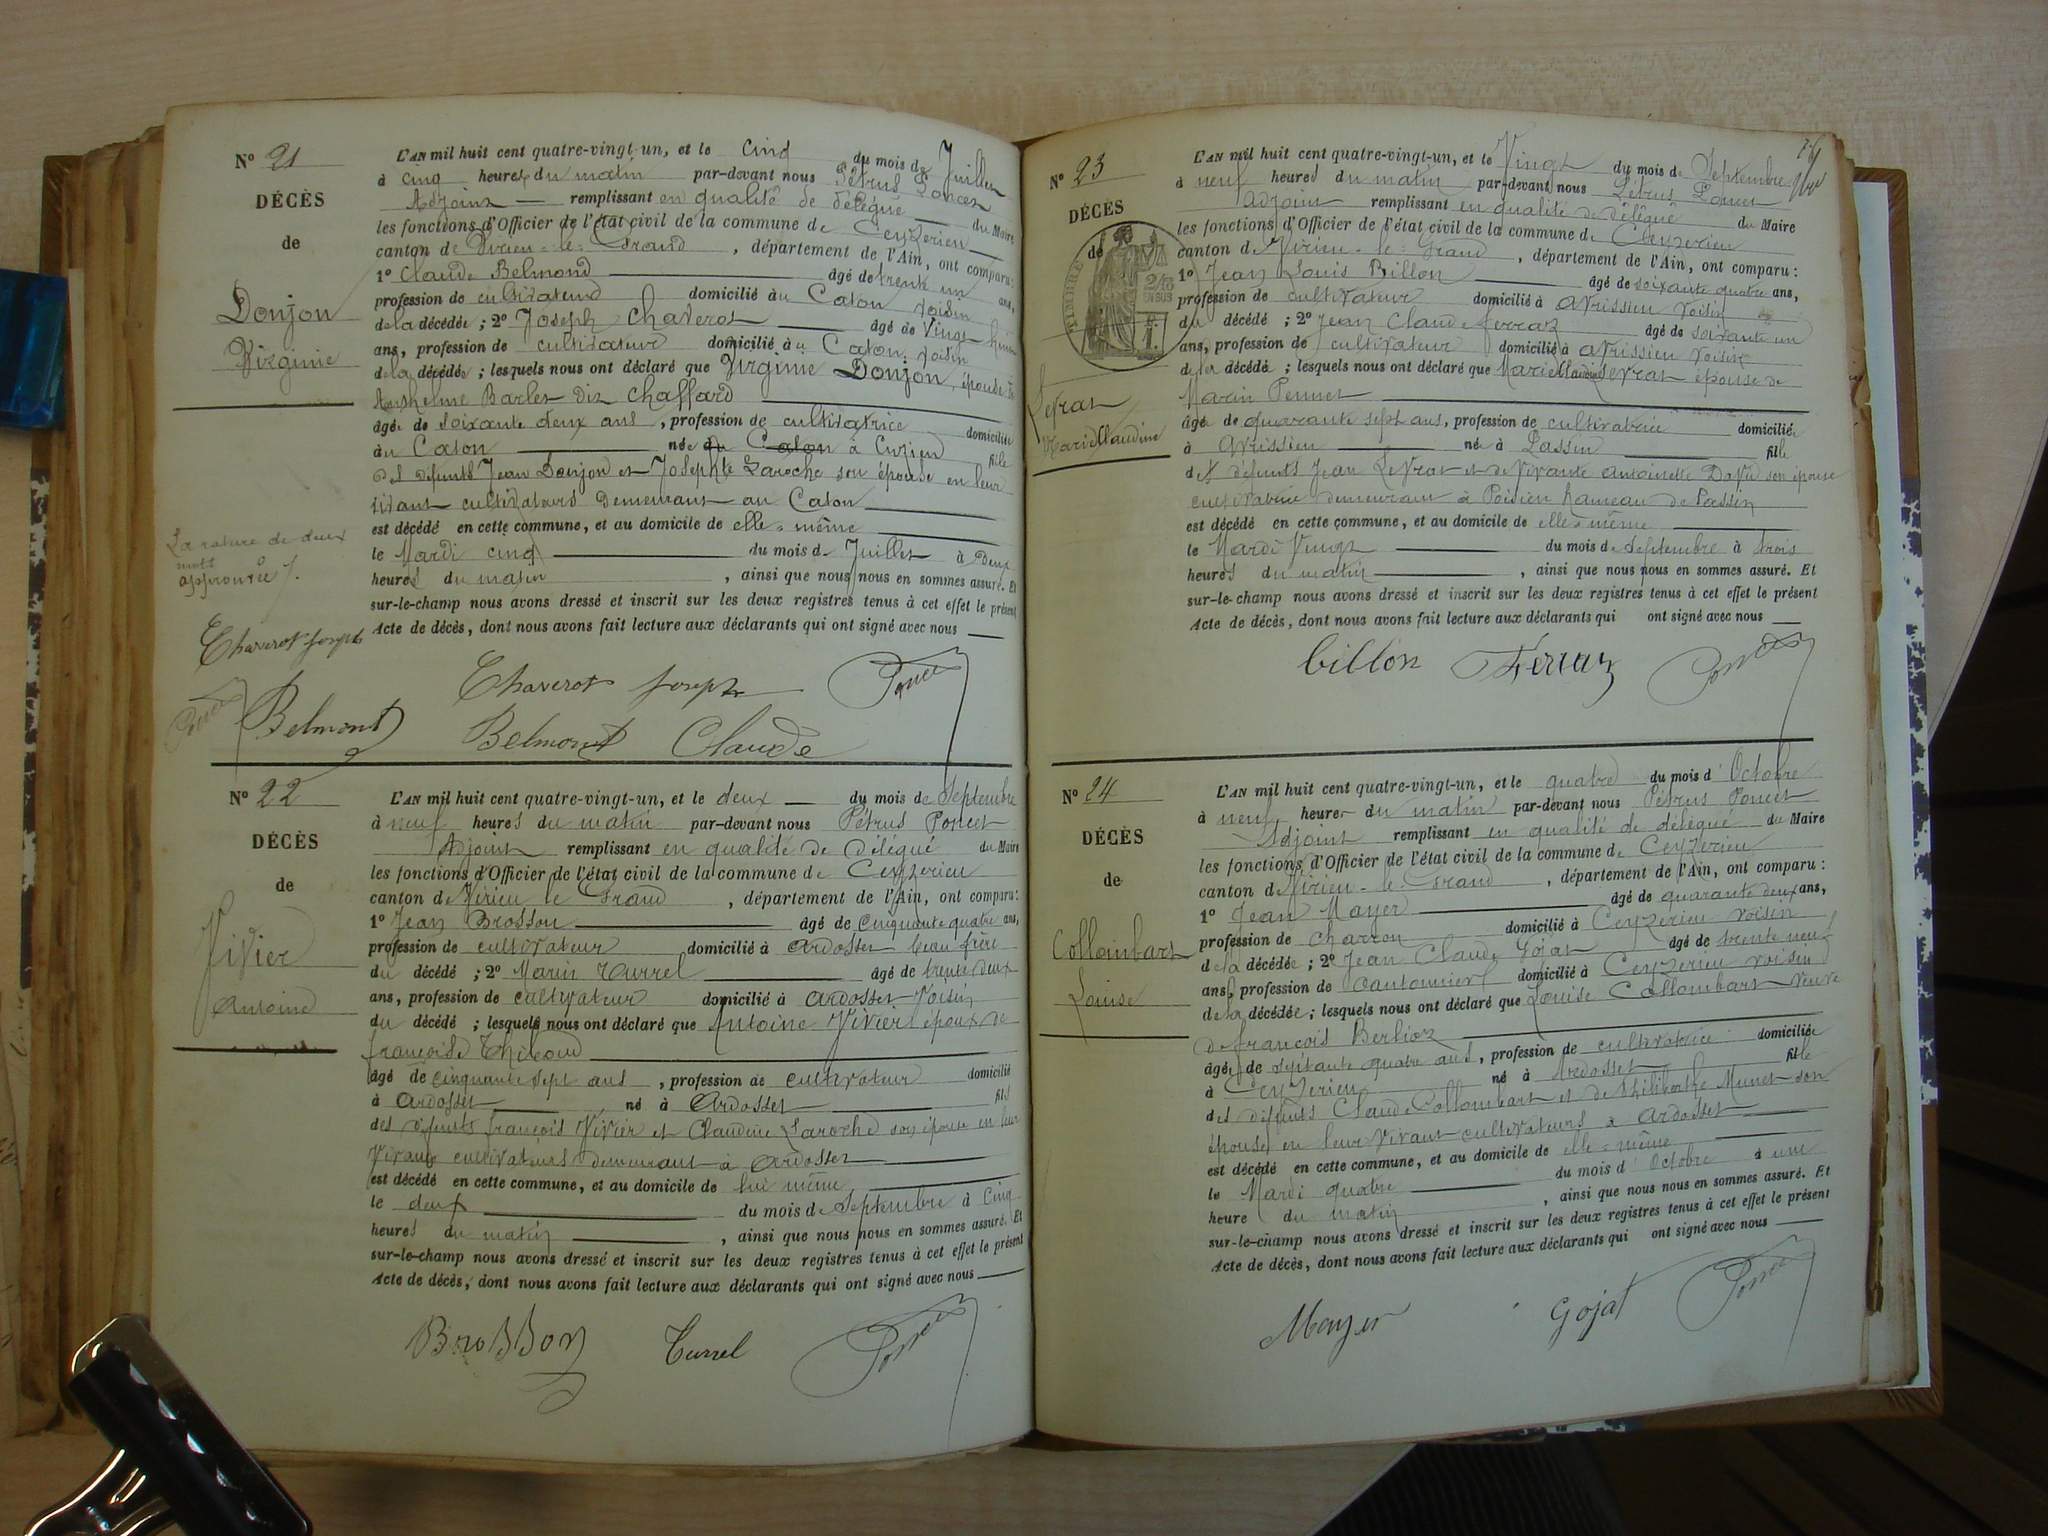 Nº 21
DÉCÈS
de
Donjon
Virginie
L'AN mil huit cent quatre-vingt-un, et le cinq du mois de Juillet
à cinq heures du matin par-devant nous Pétrus Poncet
Adjoint remplissant en qualité de délégué du Maire
les fonctions d'Officier de l'état civil de la commune de Ceyzerieu
canton de Virieu-le-Grand, département de l'Ain, ont comparu:
1º Claude Belmond âgé de trente un ans,
profession de cultivateur domicilié au Caton voisin
de la décédée; 2º Joseph Chaverot âgé de vingt huit
ans, profession de cultivateur domicilié au Caton voisin
de la décédée; lesquels nous ont déclaré que Virginie Donjon, épouse de
Anthelme Barlet dit Chaffard
âgée de soixante deux ans, profession de cultivatrice domiciliée
au Caton née au Caton à Cuzieu fille
des défunts Jean Donjon et Josephte Laroche son épouse en leur
vivant cultivateurs demeurant au Caton
est décédé en cette commune, et au domicile de elle-même
le Mardi cinq du mois de Juillet à deux
heures du matin, ainsi que nous nous en sommes assuré. Et
sur-le-champ nous avons dressé et inscrit sur les deux registres tenus à cet effet le présent
Acte de décès, dont nous avons fait lecture aux déclarants qui ont signé avec nous
La rature de deux
mots
approuvée
Chaverot Joseph
Poncet
Belmont
Chaverot Joseph
Poncet
Belmont Claude
Nº 22
DÉCÈS
de
Vivier
Antoine
L'AN mil huit cent quatre-vingt-un, et le deux du mois de Septembre
à neuf heures du matin par-devant nous Pétrus Poncet
Adjoint remplissant en qualité de délégué du Maire
les fonctions d'Officier de l'état civil de la commune de Ceyzerieu
canton de Virieu le Grand, département de l'Ain, ont comparu:
1º Jean Brosson âgé de cinquante quatre ans,
profession de cultivateur domicilié à Ardosset beau frère
du décédé; 2º Marin Turrel âgé de trente deux
ans, profession de cultivateur domicilié à Ardosset voisin
du décédé; lesquels nous ont déclaré que Antoine Vivier époux de
françoise
âgé de cinquante sept ans, profession de cultivateur domicilié
à Ardosset né à Ardosset fils
des défunts françois Vivier et Claudine Laroche son épouse en leur
vivant cultivateurs demeurant à Ardosset
est décédé en cette commune, et au domicile de lui même
le deux du mois de Septembre à cinq
heures du matin, ainsi que nous nous en sommes assuré. Et
sur-le-champ nous avons dressé et inscrit sur les deux registres tenus à cet effet le présent
Acte de décès, dont nous avons fait lecture aux déclarants qui ont signé avec nous
Brosson Turrel Poncet
Nº 23
DÉCÈS
de
TIMBRE
2/10
EN SUS
Levrat
Marie Claudine
L'AN mil huit cent quatre-vingt-un, et le Vingt du mois de Septembre
à neuf heures du matin par-devant nous Pétrus Poncet
Adjoint remplissant en qualité de délégué du Maire
les fonctions d'Officier de l'état civil de la commune de Ceyzerieu
canton de Virieu-le-Grand, département de l'Ain, ont comparu:
1º Jean Louis Billon âgé de soixante quatre ans,
profession de cultivateur domicilié à Avrissieu voisin
du décédé; 2º Jean Claude ferraz âgé de soixante un
ans, profession de cultivateur domicilié à Avrissieu voisin
de la décédé; lesquels nous ont déclaré que Marie Claudine Levrat épouse de
Marin Pennet
âgé de quarante sept ans, profession de cultivatrice domiciliée
à Avrissieu né à Lassin fille
des défunts Jean Levrat et de vivante Antoinette David son épouse
cultivatrice demeurant à Poisieu hameau de Passin
est décédé en cette commune, et au domicile de elle-même
le Mardi Vingt du mois de Septembre à trois
heures du matin, ainsi que nous nous en sommes assuré. Et
sur-le-champ nous avons dressé et inscrit sur les deux registres tenus à cet effet le présent
Acte de décès, dont nous avons fait lecture aux déclarants qui ont signé avec nous
billon Ferraz Poncet
Nº 24
DÉCÈS
de
Collombart
Louise
L'AN mil huit cent quatre-vingt-un, et le quatre du mois d'Octobre
à neuf heures du matin par-devant nous Pétrus Poncet
Adjoint remplissant en qualité de délégué du Maire
les fonctions d'Officier de l'état civil de la commune de Ceyzerieu
canton de Virieu-le-Grand, département de l'Ain, ont comparu:
1º Jean Mayer âgé de quarante deux ans,
profession de charron domicilié à Ceyzerieu voisin
de la décédée; 2º Jean Claude Gojat âgé de trente neuf
ans, profession de cantonnier domicilié à Ceyzerieu voisin
de la décédée; lesquels nous ont déclaré que Louise Collombart veuve
de françois Berlioz
âgée de septante quatre ans, profession de cultivatrice domiciliée
à Ceyzerieu né à Ardosset fille
des défunts Claude Collombart et de Philiberthe Munet son
épouse en leur vivant cultivateurs à Ardosset
est décédé en cette commune, et au domicile de elle-même
le Mardi quatre du mois d'Octobre à une
heure du matin, ainsi que nous nous en sommes assuré. Et
sur-le-champ nous avons dressé et inscrit sur les deux registres tenus à cet effet le présent
Acte de décès, dont nous avons fait lecture aux déclarants qui ont signé avec nous
Mayer Gojat Poncet